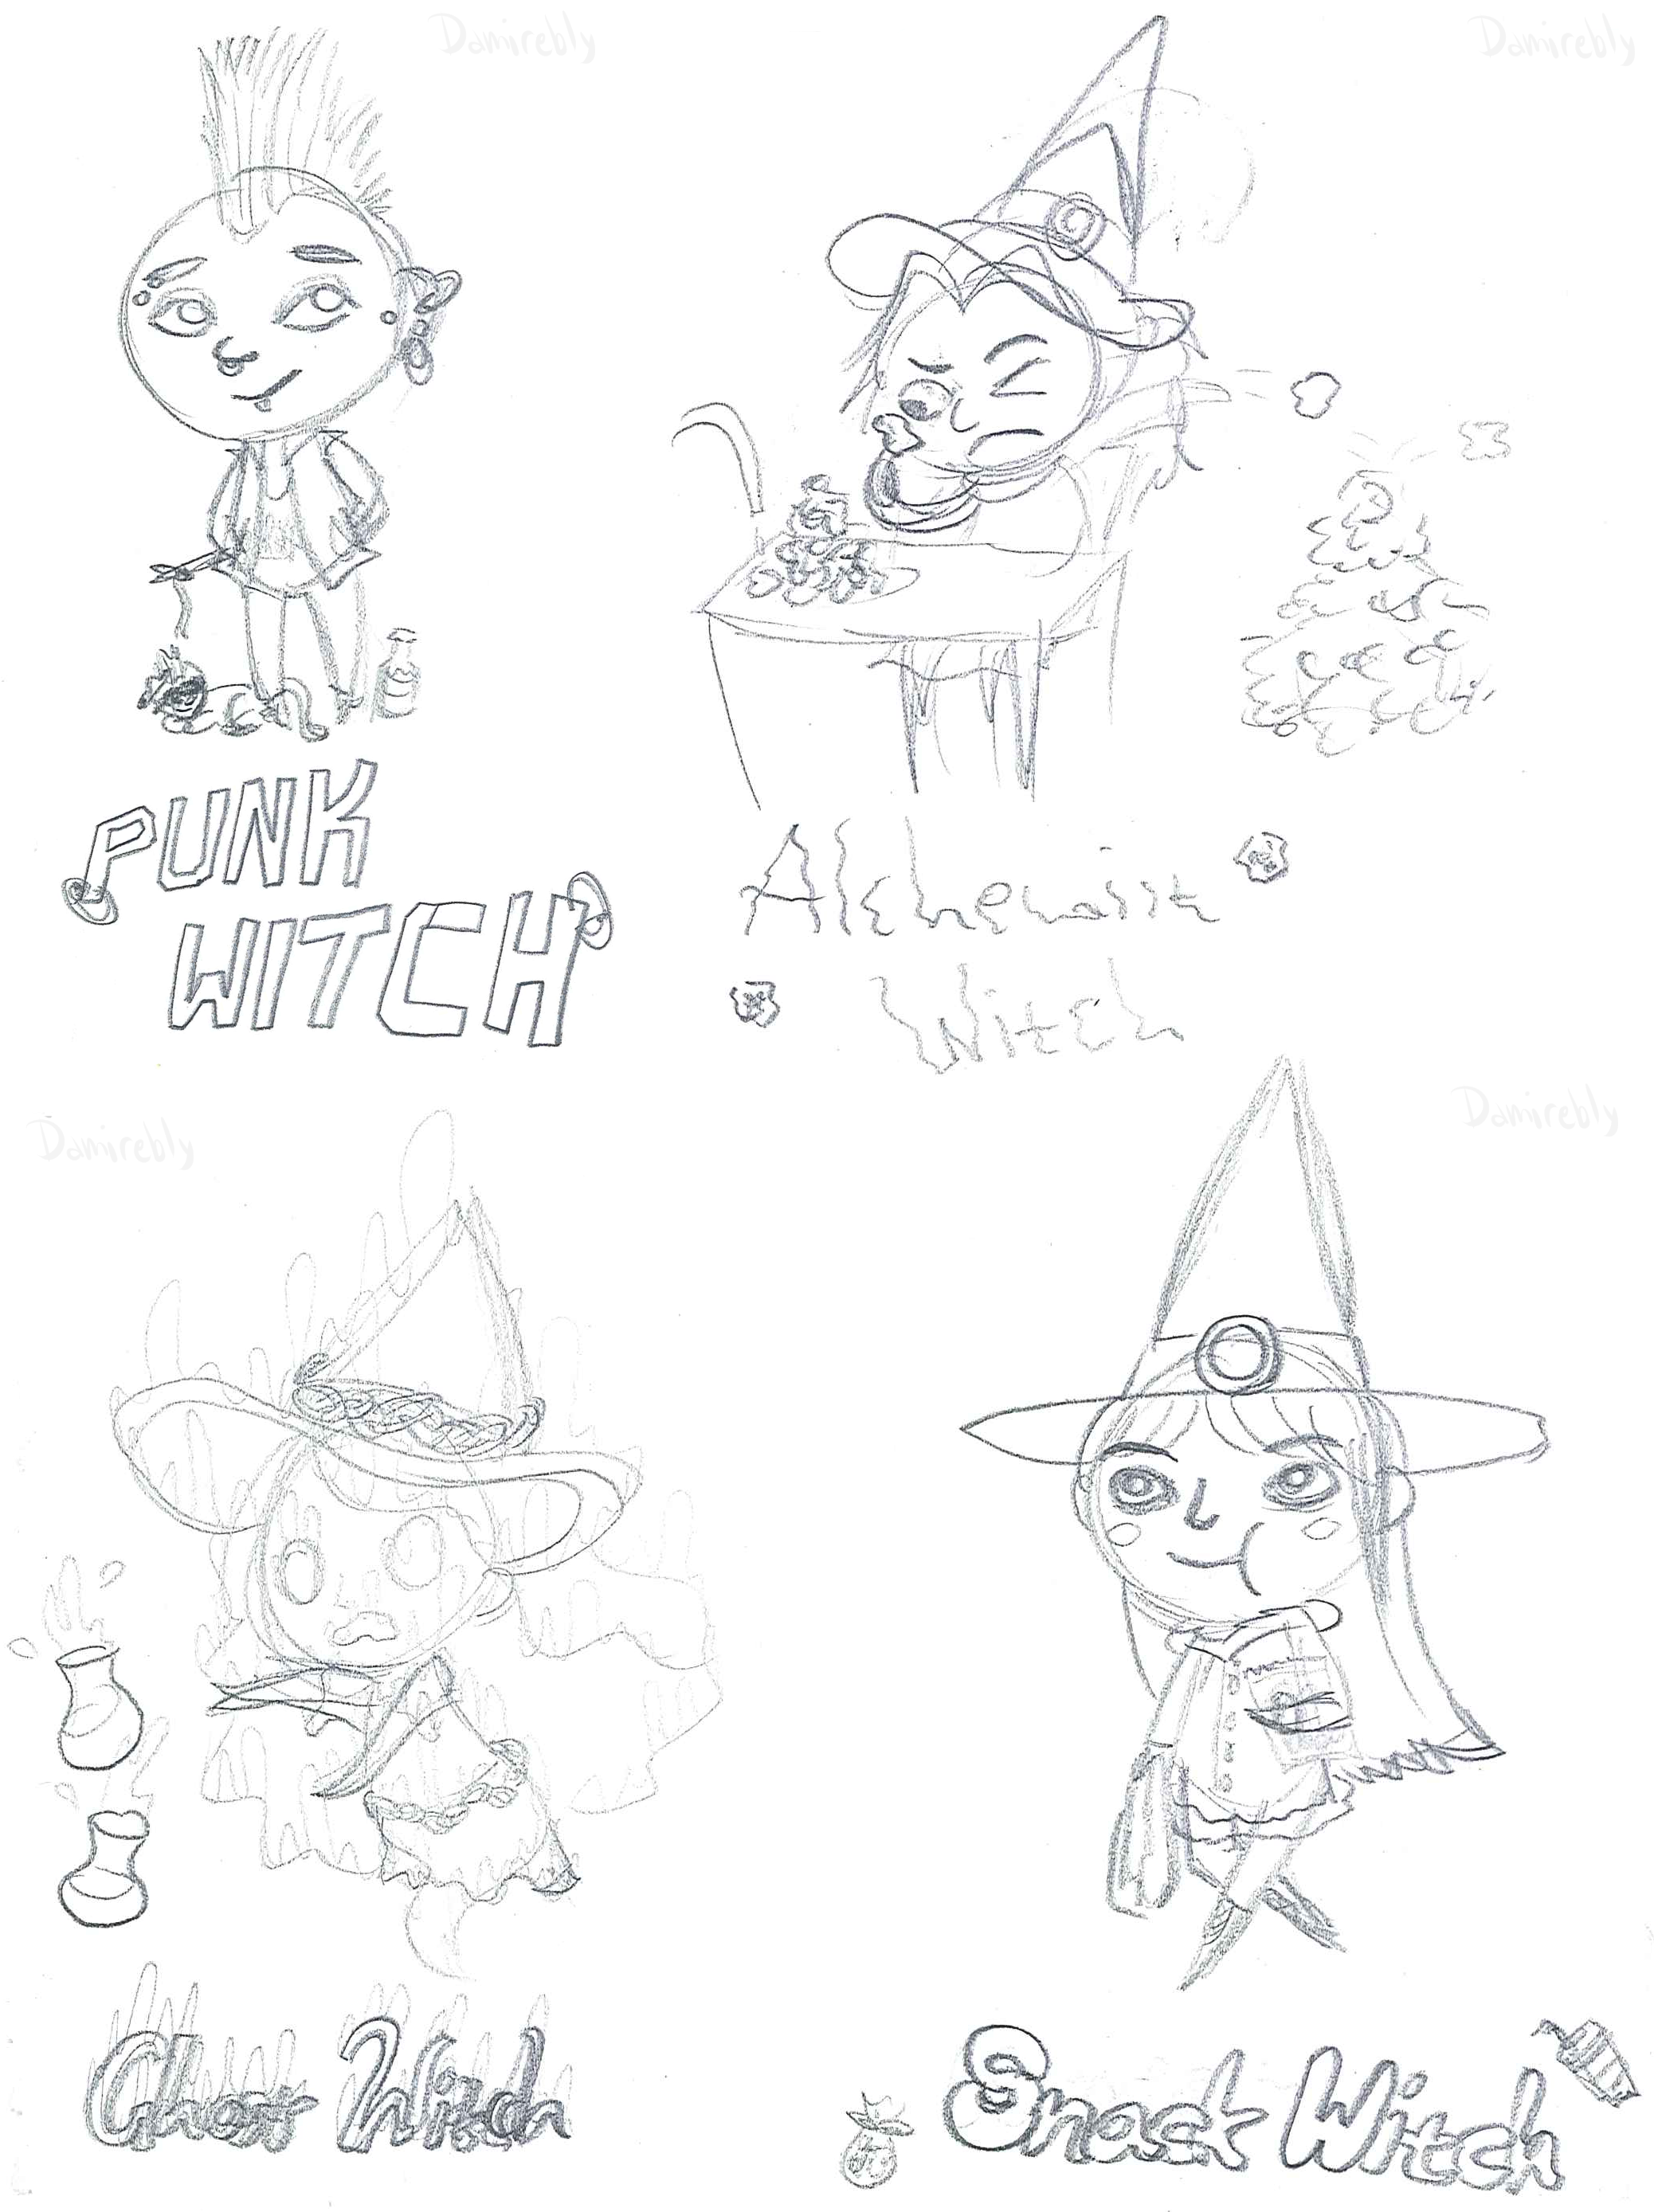 Damirebly
Damirebly
PUNK
WITCH
Alchemist
Witch
Damirebly
Damirebly
Ghost Witch
Snack Witch